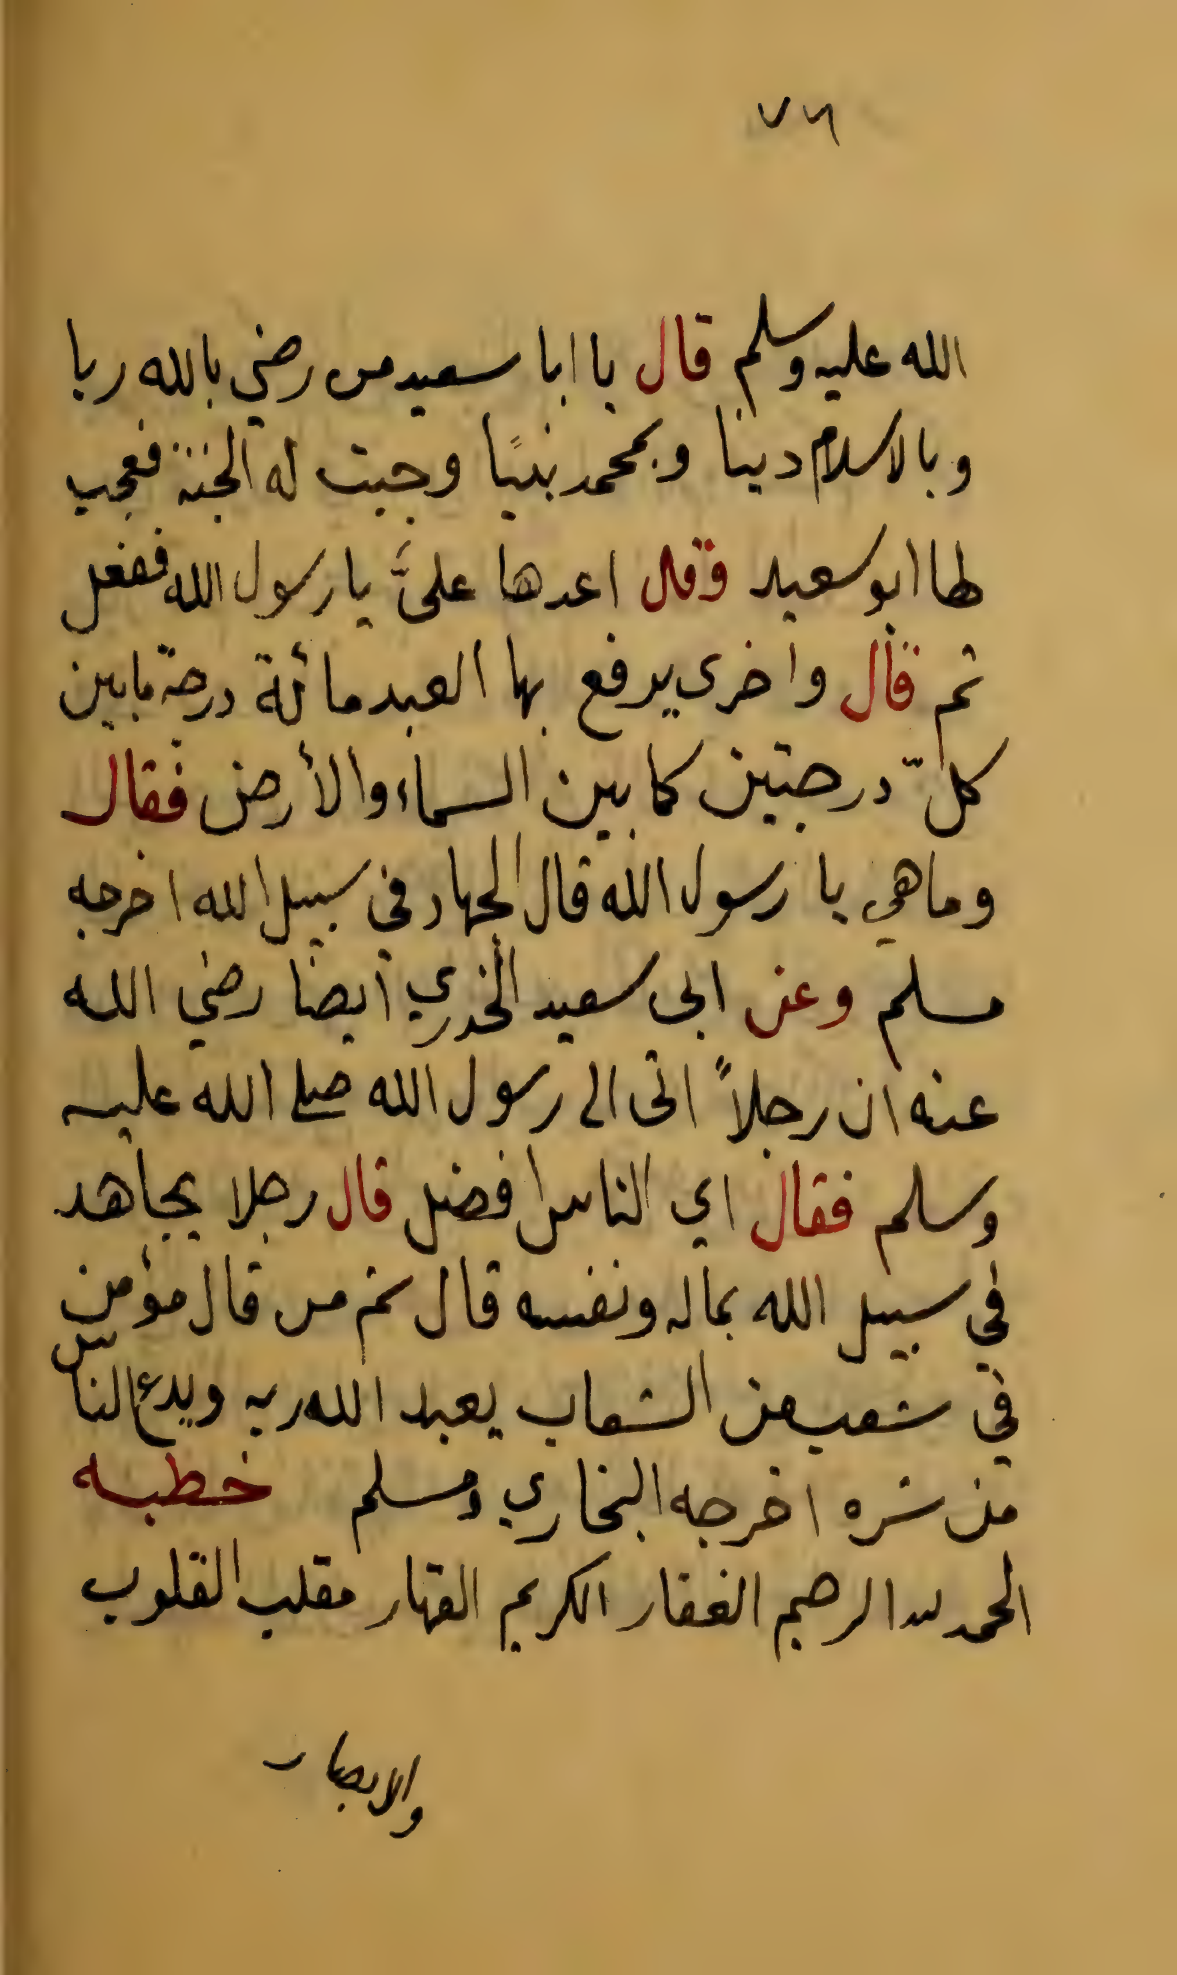 ٧٦
الله عليه وسلم قال يا ابا سعيد من رضي بالله ربا
وبالاسلام دينا وبمحمد نبيًا وجبت له الجنة فعجب
لها ابو سعيد وقال اعدها عليَّ يا رسول الله ففعل
ثم قال واخرى يرفع بها العبد مائة درجة ما بين
كلّ درجتين كما بين السماء والأرض فقال
وما هي يا رسول الله قال الجهاد في سبيل الله اخرجه
مسلم وعن ابى سعيد الخدري أيضا رضي الله
عنه ان رجلاً اتى الى رسول الله صلى الله عليه
وسلم فقال اي الناس افضل قال رجلا يجاهد
في سبيل الله بماله ونفسه قال ثم من قال مؤمن
في شعب من الشعاب يعبد الله ربه ويدع الناس
من شره اخرجه البخاري ومسلم خطبه
الحمد لله الرحيم الغفار الكريم القهار مقلب القلوب
والابصار